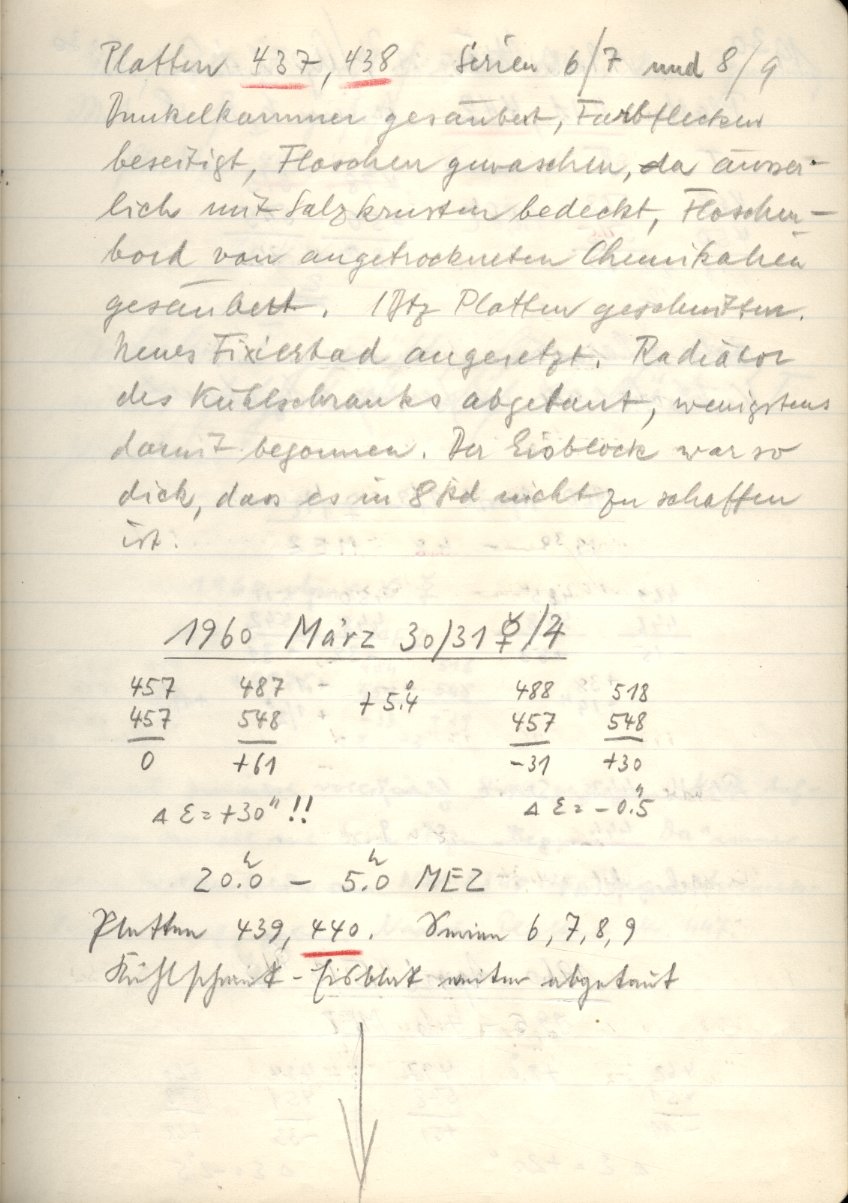 Platten 437, 438 Serien 6/7 und 8/9
Dunkelkammer gesäubert, Farbflecken
beseitigt, Flaschen gewaschen, da äusser-
lich mit Salzkrusten bedeckt, Flaschen-
bord von angetrockneten Chemikalien
gesäubert. 1 Dtz Platten geschnitten.
Neues Fixierbad angesetzt. Radiator
des Kühlschranks abgetaut, wenigstens
damit begonnen. Der Eisblock war so
dick, dass es in 8 Std nicht zu schaffen
ist.
1960 März 30/31 ☿/♃
457 487 +5°.4 488 518
457 548 457 548
0 +61 -31 +30
Δ Σ = +30" !! Δ Σ = -0".5
20.0ʰ – 5.0ʰ MEZ
Platten 439, 440. Serien 6, 7, 8, 9
Kühlschrank-Eisblock weiter abgetaut